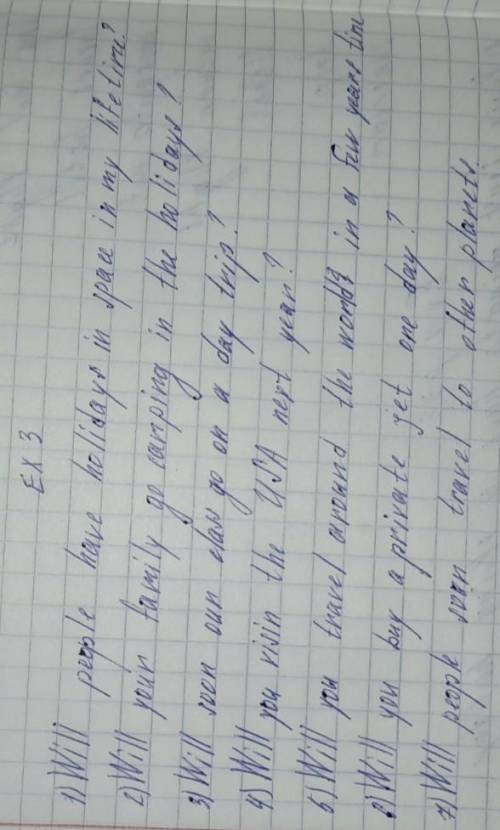 EX 3
1) Will people have holidays in space in my lifetime?
2) Will your family go camping in the holidays?
3) Will soon our class go on a day trip?
4) Will you visin the USA next year?
5) Will you travel around the world in a few years time
6) Will you buy a private jet one day?
7) Will people soon travel to other planets